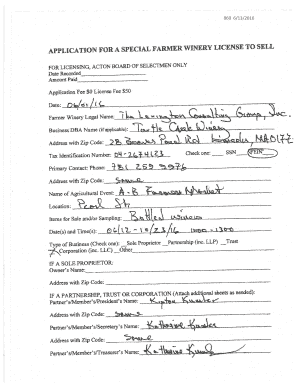 BOS 6/13/2016
APPLICATION FOR A SPECIAL FARMER WINERY LICENSE TO SELL
FOR LICENSING, ACTON BOARD OF SELECTMEN ONLY
Date Recorded
Amount Paid
Application Fee $0 License Fee $50
Date: 06/01/16
Farmer Winery Legal Name: The Lexington Consulting Group, Inc.
Business DBA Name (if applicable): Turtle Creek Winery
Address with Zip Code: 28 Beaver Pond Rd Lincoln, MA 01773
Tax Identification Number: 04-2674123 Check one: SSN FEIN
Primary Contact: Phone: 781 259 9976
Address with Zip Code: Same
Name of Agricultural Event: A-B Farmers Market
Location: Pearl St.
Items for Sale and/or Sampling: Bottled wines
Date(s) and Time(s): 06/12 - 10/23/16 1000-1300
Type of Business (Check one): Sole Proprietor Partnership (inc. LLP) Trust
X Corporation (inc. LLC) Other
IF A SOLE PROPRIETOR:
Owner's Name:
Address with Zip Code:
IF A PARTNERSHIP, TRUST OR CORPORATION (Attach additional sheets as needed):
Partner's/Member's/President's Name: Kipton Kumler
Address with Zip Code: Same
Partner's/Member's/Secretary's Name: Katharine Kumler
Address with Zip Code: Same
Partner's/Member's/Treasurer's Name: Katharine Kumler